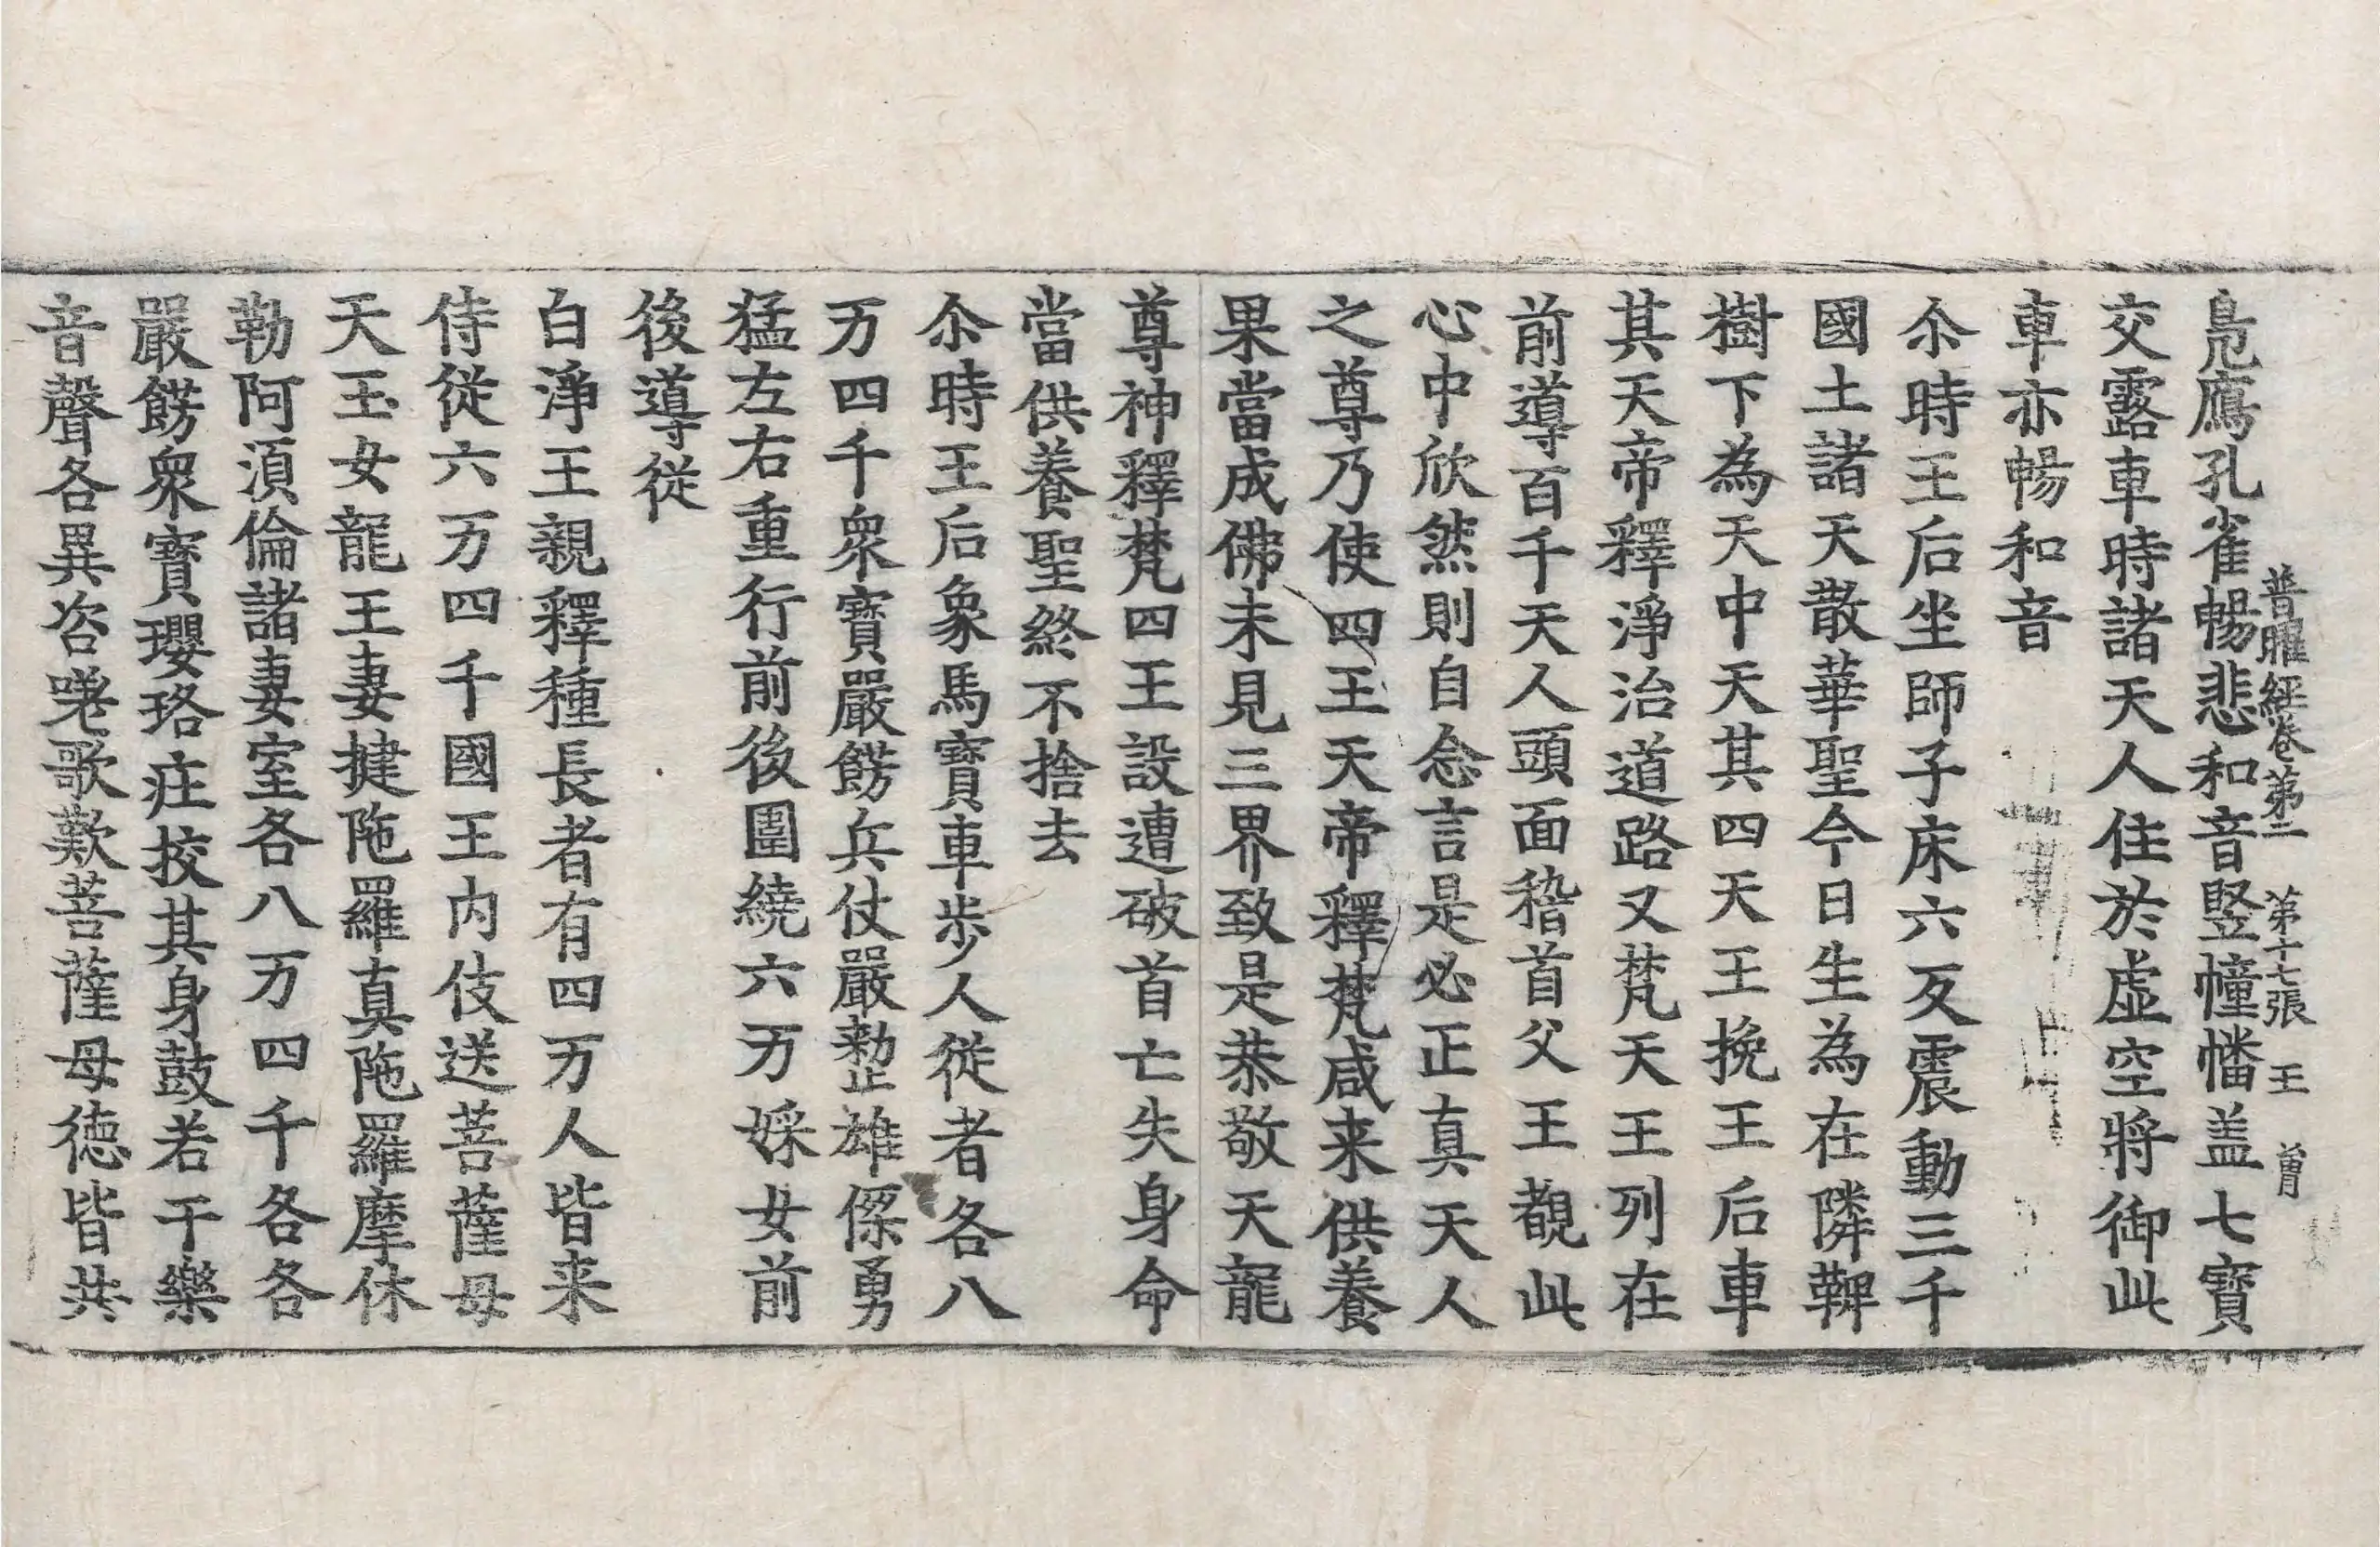 普曜經卷第二 第十七張 王 曾
鳧鴈孔雀暢悲和音竪幢幡盖七寶
交露車時諸天人住於虛空將御此
車亦暢和音
尒時王后坐師子床六反震動三千
國土諸天散華聖今日生為在隣鞞
樹下為天中天其四天王挽王后車
其天帝釋淨治道路又梵天王列在
前導百千天人頭面稽首父王覩此
心中欣然則自念言是必正真天人
之尊乃使四王天帝釋梵咸来供養
果當成佛未見三界致是恭敬天龍
尊神釋梵四王設遭破首亡失身命
當供養聖終不捨去
尒時王后象馬寶車步人從者各八
万四千衆寶嚴餝兵仗嚴整雄傑勇
猛左右重行前後圍繞六万婇女前
後導從
白淨王親釋種長者有四万人皆来
侍從六万四千國王内伎送菩薩母
天玉女龍王妻揵陁羅真陁羅摩休
勒阿湏倫諸妻室各八万四千各各
嚴餝衆寶瓔珞莊挍其身鼓若干樂
音聲各異咨嗟歌歎菩薩母徳皆共